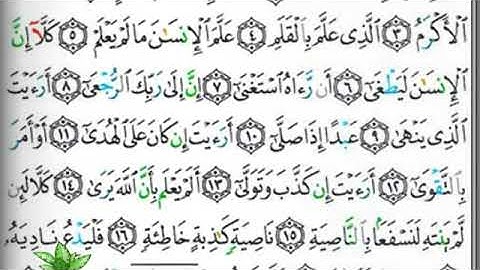 ٱلْأَكْرَمُ ۝٣ ٱلَّذِى عَلَّمَ بِٱلْقَلَمِ ۝٤ عَلَّمَ ٱلْإِنسَٰنَ مَا لَمْ يَعْلَمْ ۝٥ كَلَّآ إِنَّ
ٱلْإِنسَٰنَ لَيَطْغَىٰٓ ۝٦ أَن رَّءَاهُ ٱسْتَغْنَىٰٓ ۝٧ إِنَّ إِلَىٰ رَبِّكَ ٱلرُّجْعَىٰٓ ۝٨ أَرَءَيْتَ
ٱلَّذِى يَنْهَىٰ ۝٩ عَبْدًا إِذَا صَلَّىٰٓ ۝١٠ أَرَءَيْتَ إِن كَانَ عَلَى ٱلْهُدَىٰٓ ۝١١ أَوْ أَمَرَ
بِٱلتَّقْوَىٰٓ ۝١٢ أَرَءَيْتَ إِن كَذَّبَ وَتَوَلَّىٰٓ ۝١٣ أَلَمْ يَعْلَم بِأَنَّ ٱللَّهَ يَرَىٰ ۝١٤ كَلَّا لَئِن
لَّمْ يَنتَهِ لَنَسْفَعًۢا بِٱلنَّاصِيَةِ ۝١٥ نَاصِيَةٍ كَٰذِبَةٍ خَاطِئَةٍ ۝١٦ فَلْيَدْعُ نَادِيَهُۥ